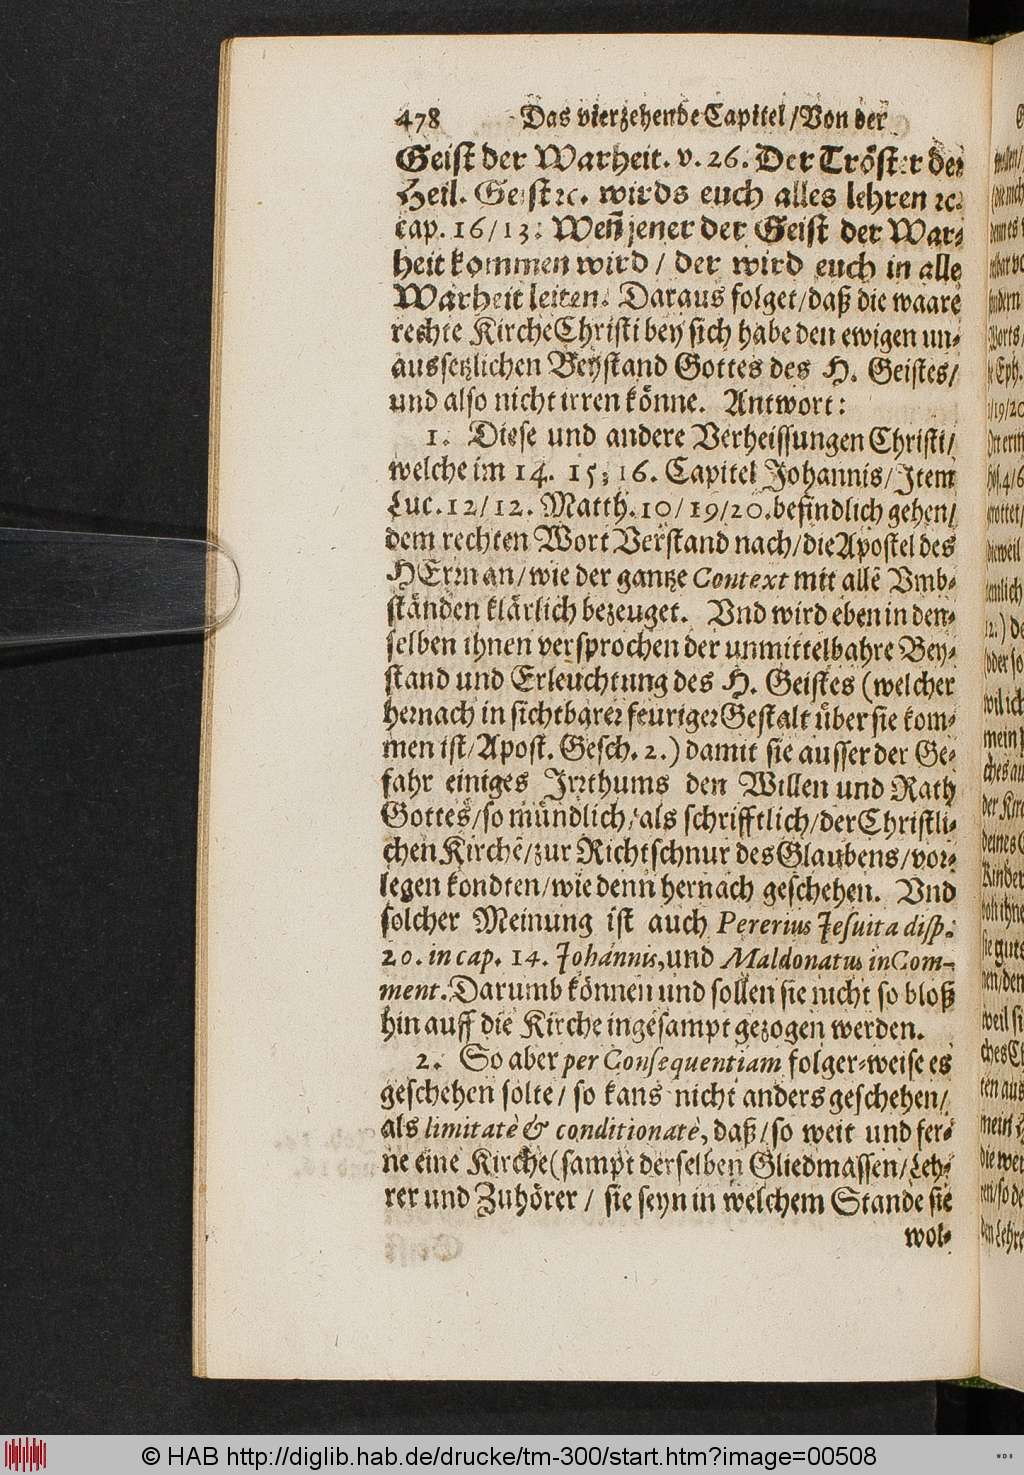 478 Das vierzehende Capitel / Von der
Geist der Warheit. v. 26. Der Tröster der
Heil. Geist ꝛc. wirds euch alles lehren ꝛc.
cap. 16/13: Weñ jener der Geist der War-
heit kommen wird / der wird euch in alle
Warheit leiten. Daraus folget/daß die waare
rechte Kirche Christi bey sich habe den ewigen un-
aussetzlichen Beystand Gottes des H. Geistes/
und also nicht irren könne. Antwort:
1. Diese und andere Verheissungen Christi/
welche im 14. 15; 16. Capitel Johannis/Item
Luc. 12/12. Matth. 10/19/20. befindlich gehen/
dem rechten Wort Verstand nach/die Apostel des
HErrn an/wie der gantze Context mit allē Vmb-
ständen klärlich bezeuget. Vnd wird eben in den-
selben ihnen versprochen der unmittelbahre Bey-
stand und Erleuchtung des H. Geistes (welcher
hernach in sichtbarer feuriger Gestalt über sie kom-
men ist/Apost. Gesch. 2.) damit sie ausser der Ge-
fahr einiges Irrthums den Willen und Rath
Gottes/so mündlich/als schrifftlich/der Christli-
chen Kirche/zur Richtschnur des Glaubens/vor-
legen kondten/wie denn hernach geschehen. Vnd
solcher Meinung ist auch Pererius Jesuita disp.
20. in cap. 14. Johannis, und Maldonatus in Com-
ment. Darumb können und sollen sie nicht so bloß
hin auff die Kirche ingesampt gezogen werden.
2. So aber per Consequentiam folger-weise es
geschehen solte/ so kans nicht anders geschehen/
als limitatè & conditionatè, daß/so weit und fer-
ne eine Kirche (sampt derselben Gliedmassen/Leh-
rer und Zuhörer / sie seyn in welchem Stande sie
wol-
© HAB http://diglib.hab.de/drucke/tm-300/start.htm?image=00508